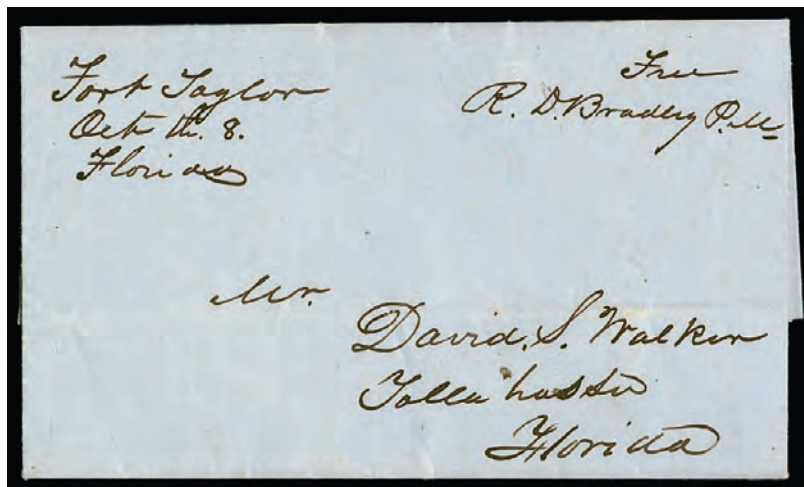 Fort Taylor
Oct th. 8.
Florida
Free
R. D. Bradley P.M
Mr.
David. S. Walker
Talla hassee
Florida